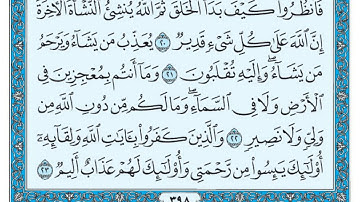 فَٱنظُرُوا۟ كَيْفَ بَدَأَ ٱلْخَلْقَ ثُمَّ ٱللَّهُ يُنشِئُ ٱلنَّشْأَةَ ٱلْءَاخِرَةَ
إِنَّ ٱللَّهَ عَلَىٰ كُلِّ شَىْءٍ قَدِيرٌ ٢٠ يُعَذِّبُ مَن يَشَآءُ وَيَرْحَمُ
مَن يَشَآءُ ۖ وَإِلَيْهِ تُقْلَبُونَ ٢١ وَمَآ أَنتُم بِمُعْجِزِينَ فِى
ٱلْأَرْضِ وَلَا فِى ٱلسَّمَآءِ ۖ وَمَا لَكُم مِّن دُونِ ٱللَّهِ مِن
وَلِىٍّ وَلَا نَصِيرٍ ٢٢ وَٱلَّذِينَ كَفَرُوا۟ بِـَٔايَٰتِ ٱللَّهِ وَلِقَآئِهِۦٓ
أُو۟لَٰٓئِكَ يَئِسُوا۟ مِن رَّحْمَتِى وَأُو۟لَٰٓئِكَ لَهُمْ عَذَابٌ أَلِيمٌ ٢٣
٣٩٨